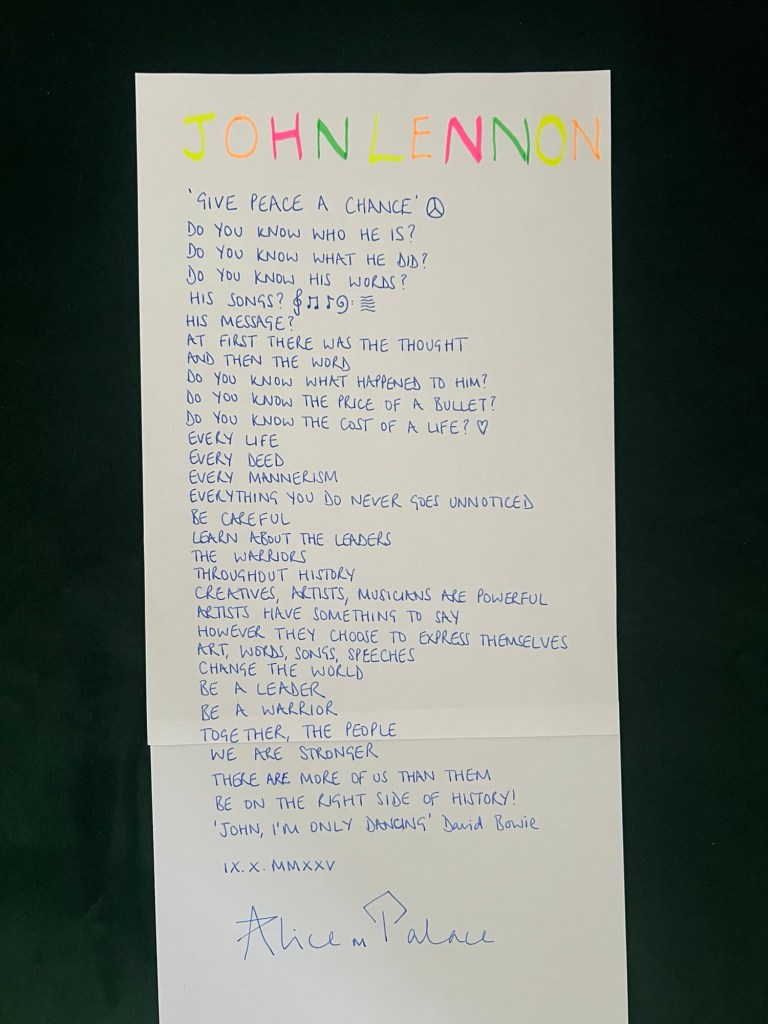 JOHN LENNON
'GIVE PEACE A CHANCE' ☮
DO YOU KNOW WHO HE IS?
DO YOU KNOW WHAT HE DID?
DO YOU KNOW HIS WORDS?
HIS SONGS?
HIS MESSAGE?
AT FIRST THERE WAS THE THOUGHT
AND THEN THE WORD
DO YOU KNOW WHAT HAPPENED TO HIM?
DO YOU KNOW THE PRICE OF A BULLET?
DO YOU KNOW THE COST OF A LIFE? ♡
EVERY LIFE
EVERY DEED
EVERY MANNERISM
EVERYTHING YOU DO NEVER GOES UNNOTICED
BE CAREFUL
LEARN ABOUT THE LEADERS
THE WARRIORS
THROUGHOUT HISTORY
CREATIVES, ARTISTS, MUSICIANS ARE POWERFUL
ARTISTS HAVE SOMETHING TO SAY
HOWEVER THEY CHOOSE TO EXPRESS THEMSELVES
ART, WORDS, SONGS, SPEECHES
CHANGE THE WORLD
BE A LEADER
BE A WARRIOR
TOGETHER, THE PEOPLE
WE ARE STRONGER
THERE ARE MORE OF US THAN THEM
BE ON THE RIGHT SIDE OF HISTORY!
'JOHN, I'M ONLY DANCING' David Bowie
IX.X.MMXXV
Alice M Palace